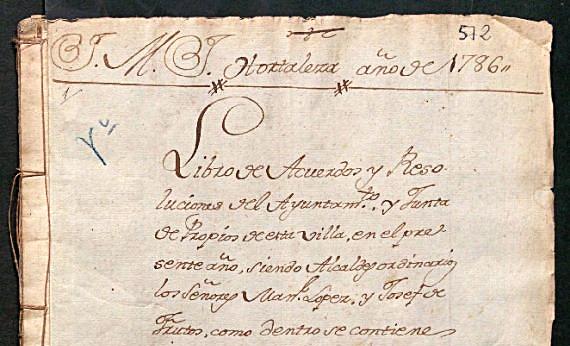 512
J. M. J. Hortaleza año de 1786,,
Libro de Acuerdos, y Reso-
luciones del Ayuntamto. y Junta
de Propios de esta Villa, en el pre
sente año, siendo Alcaldes ordinarios
los Señores Manl. Lopez, y Josef de
Frutos, como dentro se contiene